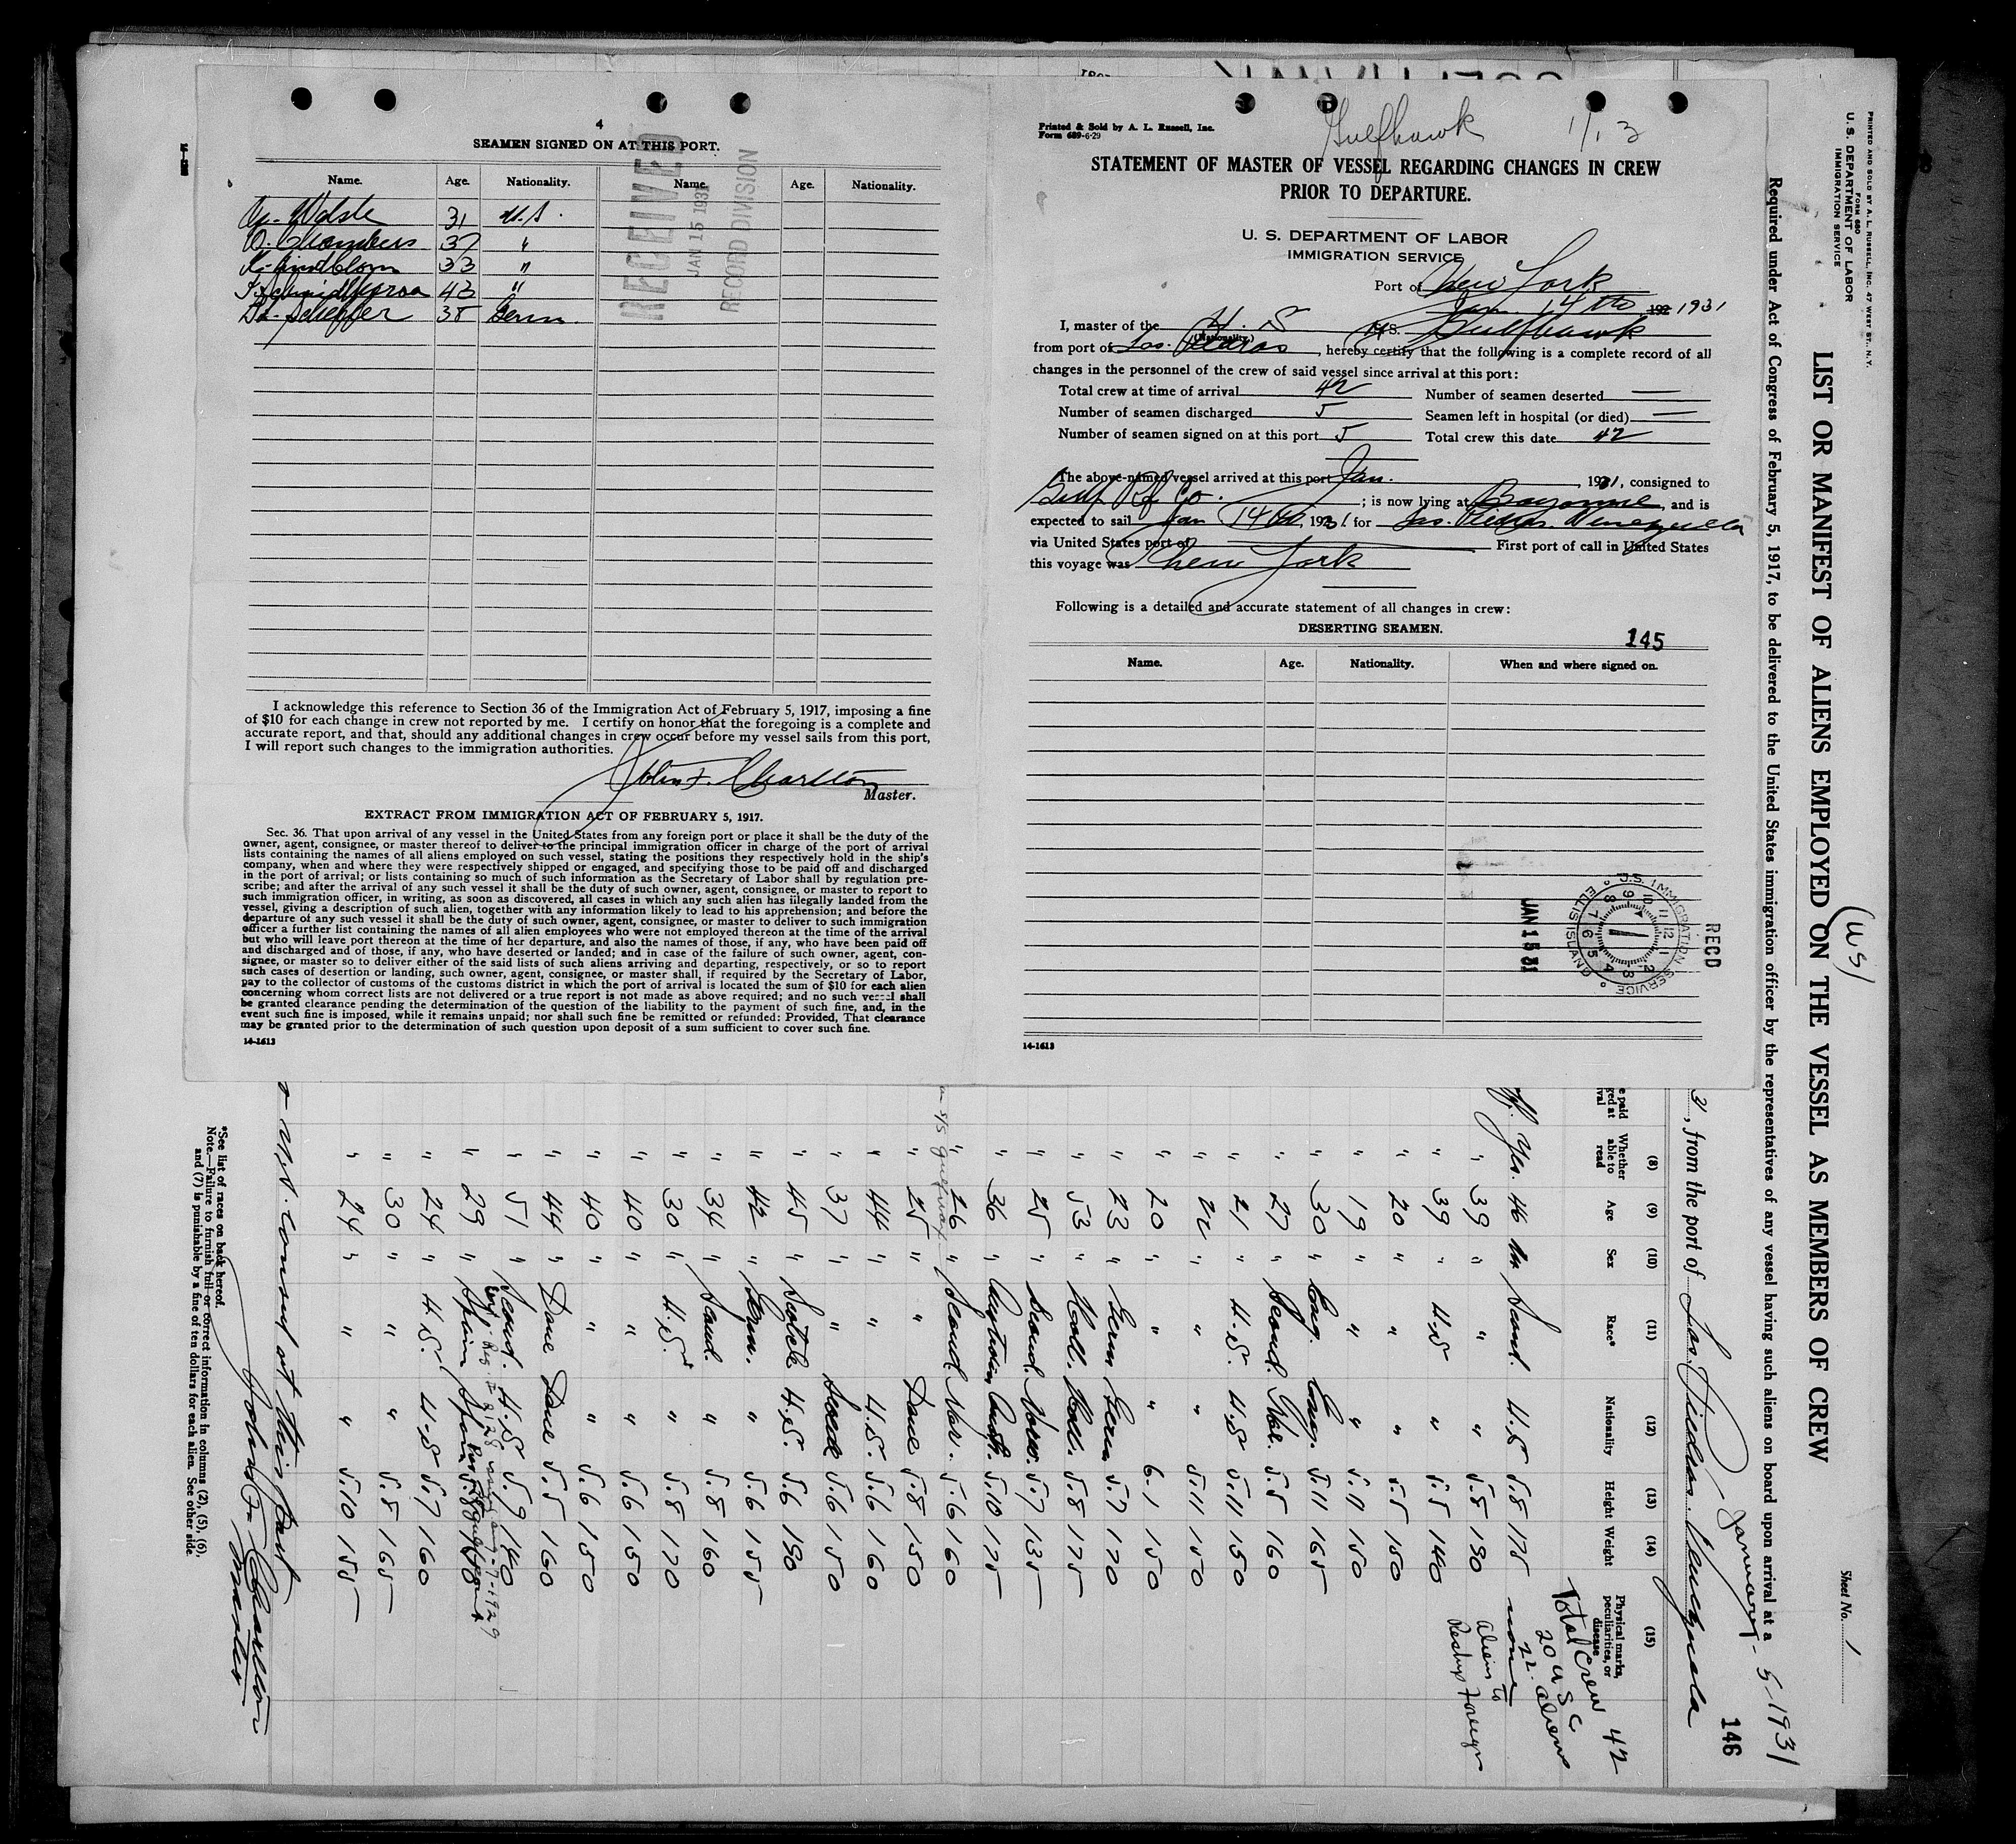 4
SEAMEN SIGNED ON AT THIS PORT.
Name. Age. Nationality. Name. Age. Nationality.
31 U.S.
O. Chambers 37 "
K. Lindblom 33 "
43 "
Scheffer 38 Germ.
RECEIVED
JAN 15 1931
RECORD DIVISION
I acknowledge this reference to Section 36 of the Immigration Act of February 5, 1917, imposing a fine
of $10 for each change in crew not reported by me. I certify on honor that the foregoing is a complete and
accurate report, and that, should any additional changes in crew occur before my vessel sails from this port,
I will report such changes to the immigration authorities.
John F. Charlton
Master.
EXTRACT FROM IMMIGRATION ACT OF FEBRUARY 5, 1917.
Sec. 36. That upon arrival of any vessel in the United States from any foreign port or place it shall be the duty of the
owner, agent, consignee, or master thereof to deliver to the principal immigration officer in charge of the port of arrival
lists containing the names of all aliens employed on such vessel, stating the positions they respectively hold in the ship's
company, when and where they were respectively shipped or engaged, and specifying those to be paid off and discharged
in the port of arrival; or lists containing so much of such information as the Secretary of Labor shall by regulation pre-
scribe; and after the arrival of any such vessel it shall be the duty of such owner, agent, consignee, or master to report to
such immigration officer, in writing, as soon as discovered, all cases in which any such alien has illegally landed from the
vessel, giving a description of such alien, together with any information likely to lead to his apprehension; and before the
departure of any such vessel it shall be the duty of such owner, agent, consignee, or master to deliver to such immigration
officer a further list containing the names of all alien employees who were not employed thereon at the time of the arrival
but who will leave port thereon at the time of her departure, and also the names of those, if any, who have been paid off
and discharged and of those, if any, who have deserted or landed; and in case of the failure of such owner, agent, con-
signee, or master so to deliver either of the said lists of such aliens arriving and departing, respectively, or so to report
such cases of desertion or landing, such owner, agent, consignee, or master shall, if required by the Secretary of Labor,
pay to the collector of customs of the customs district in which the port of arrival is located the sum of $10 for each alien
concerning whom correct lists are not delivered or a true report is not made as above required; and no such vessel shall
be granted clearance pending the determination of the question of the liability to the payment of such fine, and, in the
event such fine is imposed, while it remains unpaid; nor shall such fine be remitted or refunded: Provided, That clearance
may be granted prior to the determination of such question upon deposit of a sum sufficient to cover such fine.
14-1613
Printed & Sold by A. L. Russell, Inc.
Form 689-6-29
Gulfhawk 1/13
STATEMENT OF MASTER OF VESSEL REGARDING CHANGES IN CREW
PRIOR TO DEPARTURE.
U. S. DEPARTMENT OF LABOR
IMMIGRATION SERVICE
Port of New York
Jan. 14th 1931
I, master of the U. S. (Nationality.) S. Gulfhawk
from port of Las Piedras, hereby certify that the following is a complete record of all
changes in the personnel of the crew of said vessel since arrival at this port:
Total crew at time of arrival 42 Number of seamen deserted —
Number of seamen discharged 5 Seamen left in hospital (or died) —
Number of seamen signed on at this port 5 Total crew this date 42
The above-named vessel arrived at this port Jan. 1931, consigned to
Gulf Rf Co. ; is now lying at Bayonne, and is
expected to sail Jan 14th, 1931 for Las Piedras Venezuela
via United States port of First port of call in United States
this voyage was New York
Following is a detailed and accurate statement of all changes in crew:
DESERTING SEAMEN.
145
Name. Age. Nationality. When and where signed on.
RECD
U.S. IMMIGRATION SERVICE ELLIS ISLAND
JAN 15 31
14-1613
PRINTED AND SOLD BY A. L. RUSSELL, INC. 47 WEST ST., N.Y.
FORM 680
U. S. DEPARTMENT OF LABOR
IMMIGRATION SERVICE
Sheet No. 1
LIST OR MANIFEST OF ALIENS EMPLOYED ON THE VESSEL AS MEMBERS OF CREW
(US)
Required under Act of Congress of February 5, 1917, to be delivered to the United States immigration officer by the representatives of any vessel having such aliens on board upon arrival at a
January 5-1931
146
, from the port of Las Piedras Venezuela
(8) (9) (10) (11) (12) (13) (14) (15)
Whether able to read Age Sex Race* Nationality Height Weight Physical marks, peculiarities, or disease
Total Crew 42
20 U S C
22 aliens
Yes 46 M Scand. U.S 5.8 175 none
" 39 " " " 5.8 190
" 39 " U.S " 5.5 140
" 20 " " " 5.5 150
" 19 " " " 5.11 150
" 30 " Eng. Eng. 5.11 165
" 27 " Scand. 5.5 160
" 21 " U.S. U.S 5.11 150
" 22 " " " 5.11 150
" 20 " " " 6.1 150
" 23 " Germ Germ 5.7 170
" 53 " Holl. Holl. 5.8 175
" 25 " Scand. Norw. 5.7 135
" 36 " Austrian Aust. 5.10 175
" 26 " Scand. Nor. 5.6 160
" 25 " " Dane 5.8 150
" 44 " " U.S. 5.6 160
" 37 " " 5.6 150
" 45 " Scotch U.S. 5.6 190
" 42 " Germ. " 5.6 155
" 34 " Scand. " 5.8 160
" 30 " U.S. " 5.8 170
" 40 " " " 5.6 150
" 40 " " " 5.6 150
" 44 " Dane Dane 5.5 160
" 51 " Scand. U.S 5.9 140
" 29 " Spain Spain
" 24 " U.S. U.S 5.7 160
" 30 " " " 5.8 165
" 24 " " " 5.10 155
consul at this port
John F. Charlton
Master
*See list of races on back hereof.
Note.—Failure to furnish full or correct information in columns (2), (5), (6),
and (7) is punishable by a fine of ten dollars for each alien. See other side.